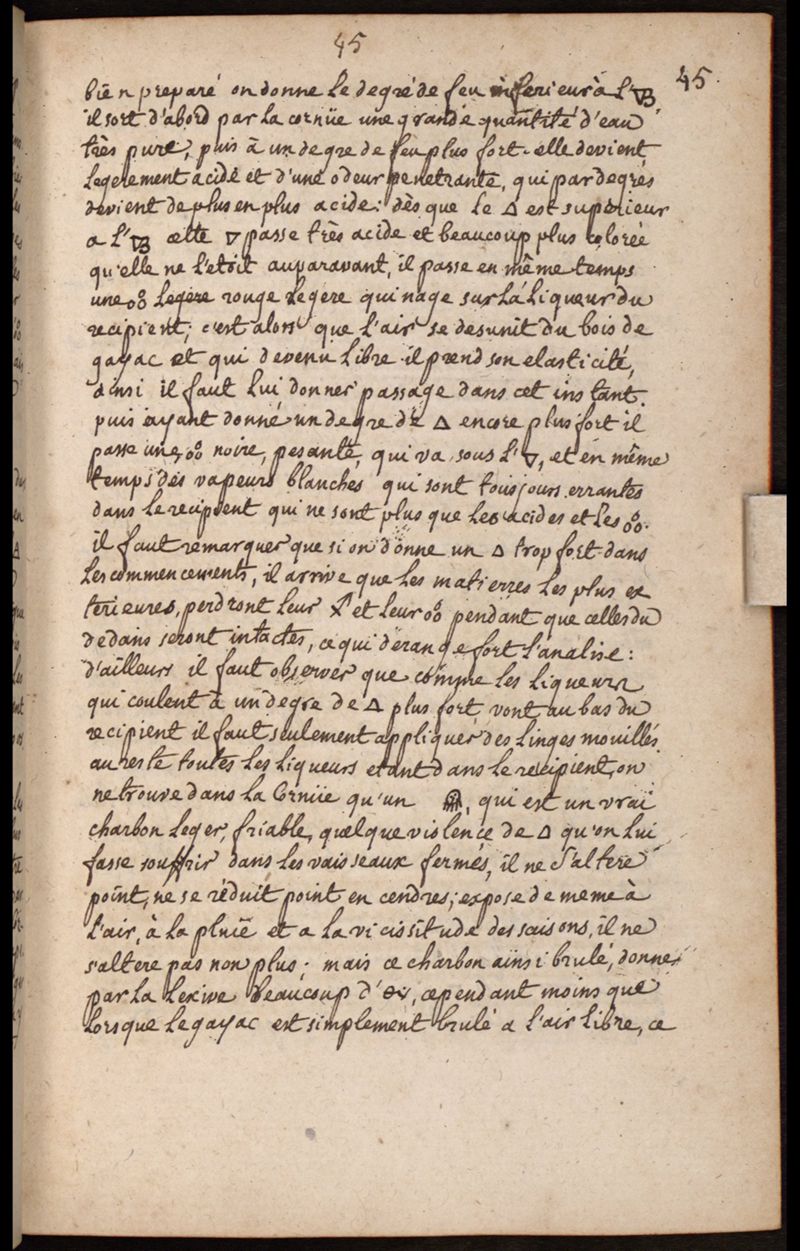 45
45.
bien preparé on donne le degré de feu inferieur à l'🜄B
il sort d'abord par la cornüe une grande quantité d'eau
très pure, puis à un degre de feu plus fort elle devient
legerement acide et d'une odeur penetrante, qui par degrés
devient de plus en plus acide: dès que le 🜂 est superieur
a l'🜄B cette 🜄 passe très acide et beaucoup plus colorée
qu'elle ne l'etoit auparavant, il passe en même temps
une o°o legere rouge legere qui nage sur la liqueur du
recipient; c'est alors que l'air se desunit du bois de
gayac et qui devenu libre il prend son elasticité,
ainsi il faut lui donner passage dans cet instant.
puis ayant donné un degre de 🜂 encore plus fort il
passe une o°o noire, pesante, qui va sous l'🜄, et en même
temps des vapeurs blanches qui sont tousjours errantes
dans le recipient qui ne sont plus que les acides et les o°o.
il faut remarquer que si on donne un 🜂 trop fort dans
les commencements, il arrive que les matierres les plus ex
terieures, perdront leur et leur o°o pendant que celles du
dedans seront intactes, ce qui derange fort l'analise:
d'ailleurs il faut observer que comme les liqueurs
qui coulent à un degre de 🜂 plus fort, vont au bas du
recipient il faut seulement appliquer des linges mouillés.
au reste toutes les liqueurs etant dans le recipient, on
ne trouve dans la Cornüe qu'un , qui est un vrai
charbon leger, friable, quelque violence de 🜂 qu'on lui
fasse souffrir dans les vaisseaux fermés, il ne s'altere
point, ne se réduit point en cendres; expose de meme à
l'air, à la pluië et a la vicissitude des saisons, il ne
s'altere pas non plus. mais ce charbon aïnsi brulé, donne
par la lexive beaucoup d' , cependant moins que
lorsque le gayac est simplement brulé a l'air libre, ce